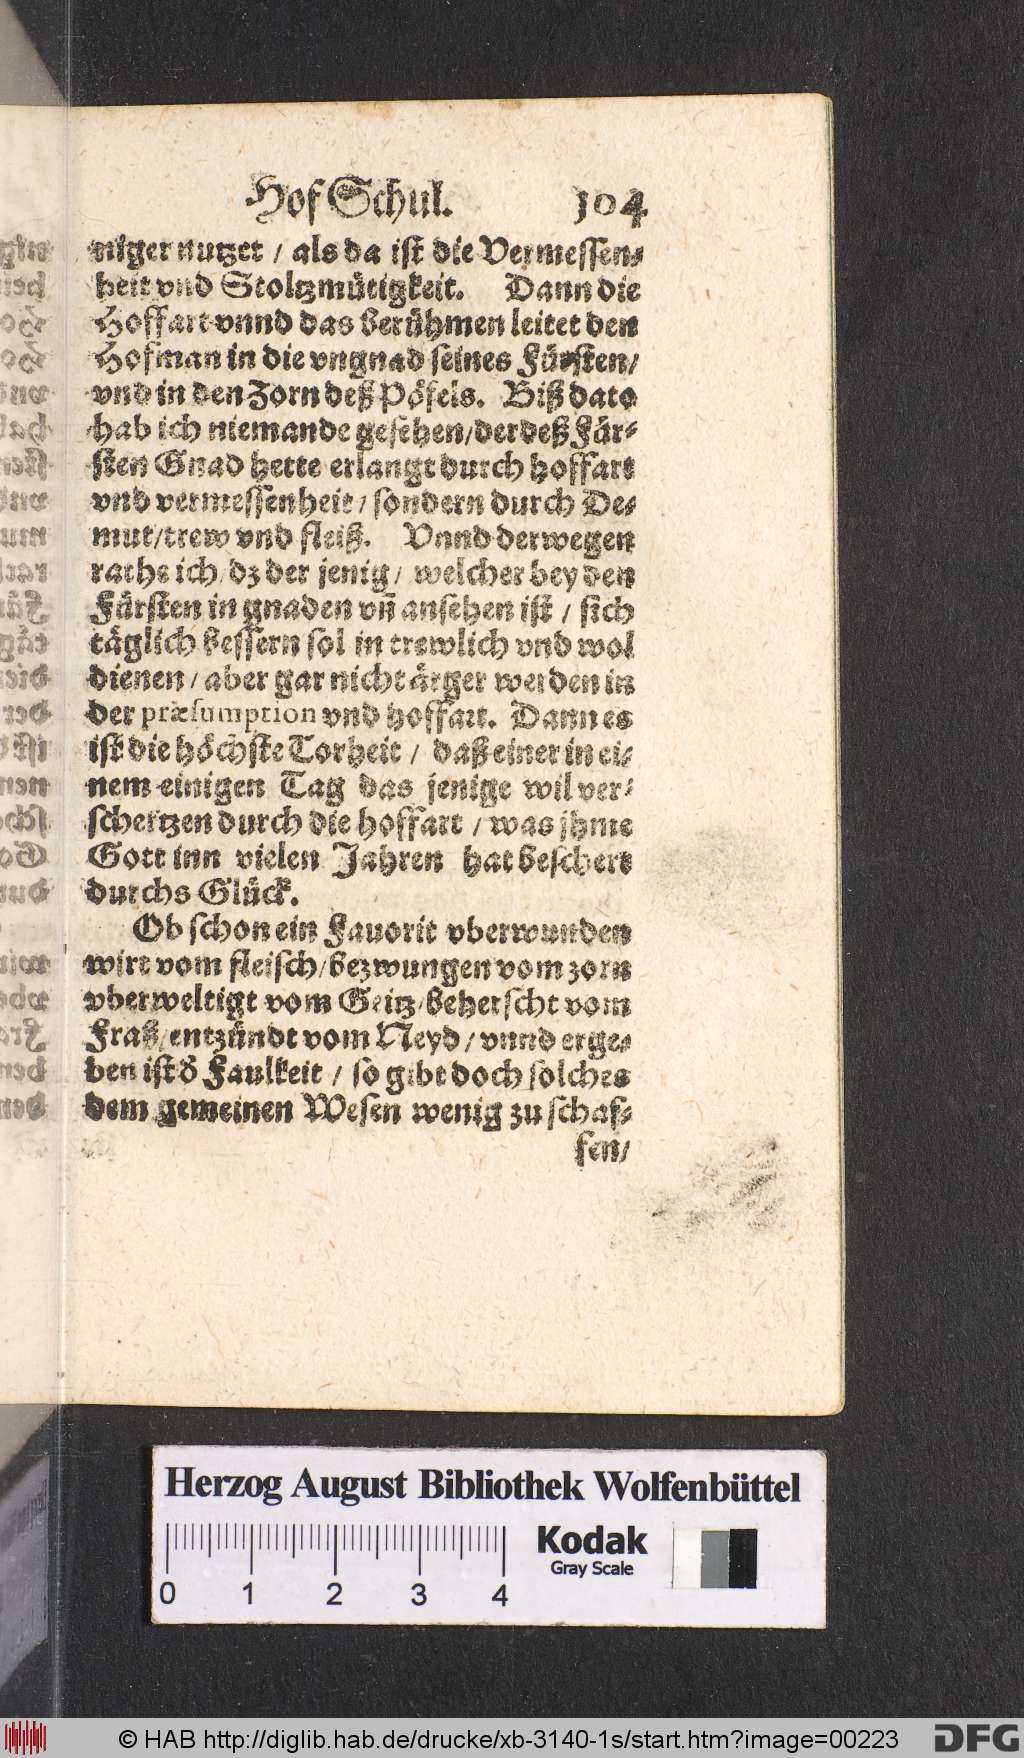 Hof Schul. 104
niger nutzet / als da ist die Vermessen-
heit vnd Stoltzmütigkeit. Dann die
Hoffart vnnd das berühmen leitet den
Hofman in die vngnad seines Fürsten/
vnd in den Zorn deß Pöfels. Biß dato
hab ich niemande gesehen/der deß Für-
sten Gnad hette erlangt durch hoffart
vnd vermessenheit / sondern durch De-
mut/trew vnd fleiß. Vnnd derwegen
rathe ich/dz der jenig / welcher bey den
Fürsten in gnaden vñ ansehen ist / sich
täglich bessern sol in trewlich vnd wol
dienen / aber gar nicht ärger werden in
der præsumption vnd hoffart. Dann es
ist die höchste Torheit / daß einer in ei-
nem einigen Tag das jenige wil ver-
schertzen durch die hoffart / was jhme
Gott inn vielen Jahren hat beschert
durchs Glück.
Ob schon ein Fauorit vberwunden
wirt vom fleisch/bezwungen vom zorn
vberweltigt vom Geitz/beherscht vom
Fraß/entzündt vom Neyd / vnnd erge-
ben ist d̕ Faulkeit / so gibt doch solches
dem gemeinen Wesen wenig zu schaf-
fen/
Herzog August Bibliothek Wolfenbüttel
Kodak
Gray Scale
0 1 2 3 4
© HAB http://diglib.hab.de/drucke/xb-3140-1s/start.htm?image=00223
DFG